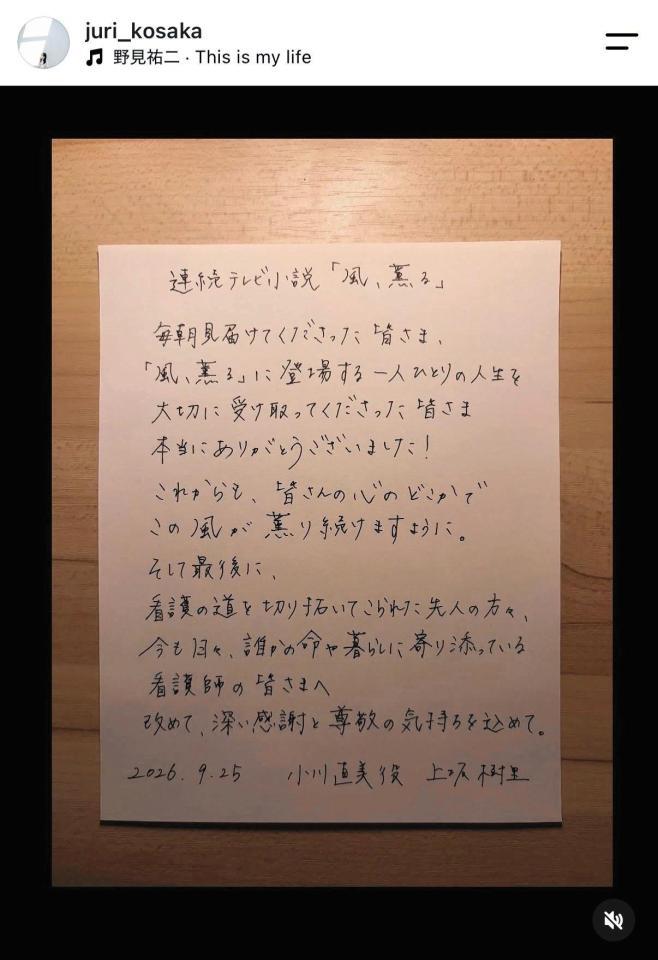 juri_kosaka
野見祐二・This is my life
連続テレビ小説「風、薫る」
毎朝見届けてくださった皆さま、
「風、薫る」に登場する一人ひとりの人生を
大切に受け取ってくださった皆さま
本当にありがとうございました!
これからも、皆さんの心のどこかで
この風が薫り続けますように。
そして最後に、
看護の道を切り拓いてこられた先人の方々、
今も日々、誰かの命や暮らしに寄り添っている
看護師の皆さまへ
改めて、深い感謝と尊敬の気持ちを込めて。
2026.9.25 小川直美役 上坂樹里